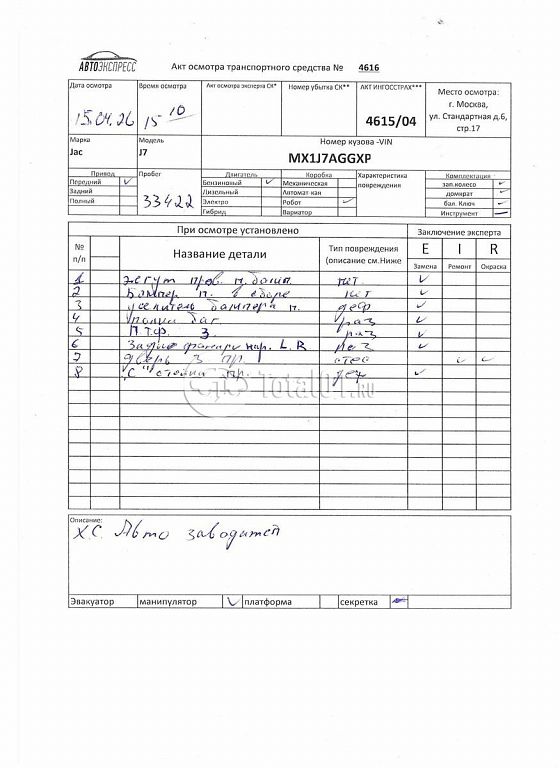 АВТОЭКСПРЕСС
Акт осмотра транспортного средства № 4616
Дата осмотра
Время осмотра
Акт осмотра эксперта СК*
Номер убытка СК**
АКТ ИНГОССТРАХ***
Место осмотра:
г. Москва,
ул. Стандартная д.6,
стр.17
15.04.26
15 10
4615/04
Марка
Модель
Номер кузова -VIN
Jac
J7
MX1J7AGGXP
Привод
Пробег
Двигатель
Коробка
Характеристика
повреждения
Комплектация
Передний
Бензиновый
Механическая
зап.колесо
Задний
Дизельный
Автомат кая
домкрат
Полный
33422
Электро
Робот
бал. Ключ
Гибрид
Вариатор
Инструмент
При осмотре установлено
Заключение эксперта
№
п/п
Название детали
Тип повреждения
(описание см.Ниже
E I R
Замена
Ремонт
Окраска
1 жгут пров. п. бамп. нет
2 Бампер п. в сборе нет
3 усилитель бампера п. деф
4 полка баг. раз
5 П.Т.Ф. З. раз
6 Задние фонари нар. L.R раз
7 дверь З пр.
8 "С" стойка пр.
Total01.RU
Описание:
Х.С. Авто заводится
Эвакуатор
манипулятор
платформа
секретка